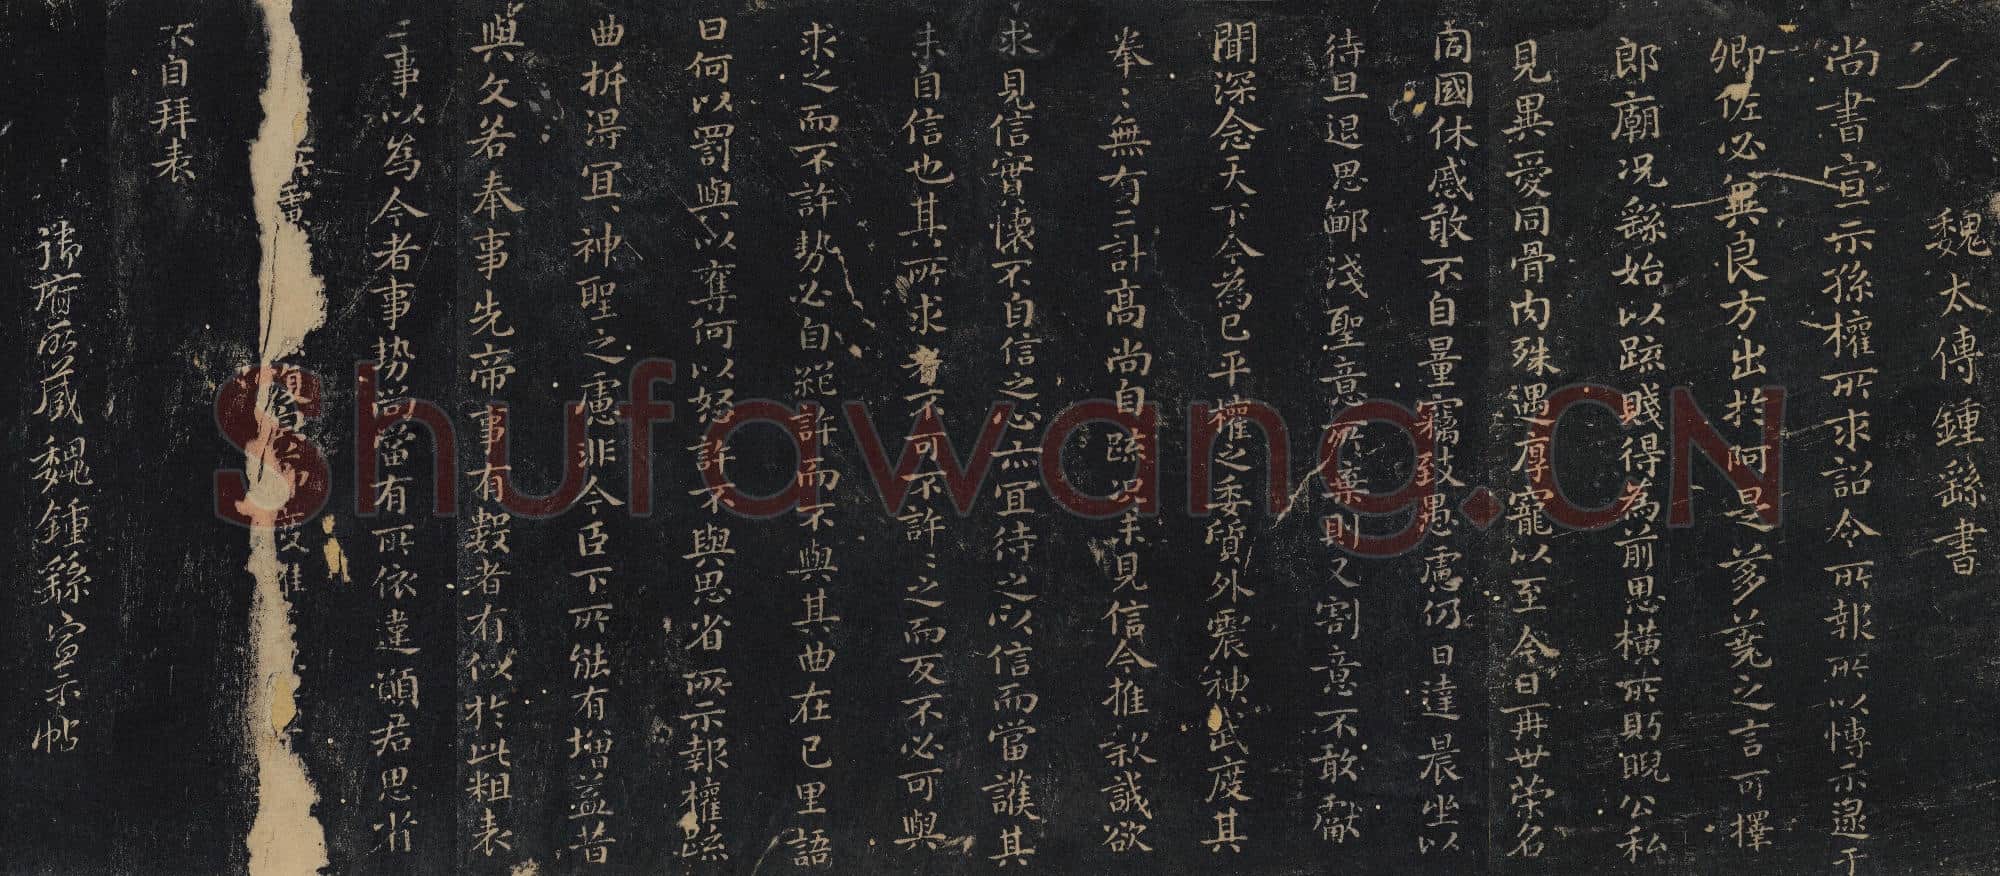 魏太傅鍾繇書
尚書宣示孫權所求詔令所報所以博示逮于
卿佐必冀良方出於阿是芻蕘之言可擇
郎廟況繇始以疏賤得為前恩橫所眄睨公私
見異愛同骨肉殊遇厚寵以至今日再世榮名
同國休慼敢不自量竊致愚慮仍日達晨坐以
待旦退思鄙淺聖意所棄則又割意不敢獻
聞深念天下今為已平權之委質外震神武度其
拳〻無有二計高尚自疏況未見信今推款誠欲
求見信實懷不自信之心亦宜待之以信而當護其
未自信也其所求者不可不許〻之而反不必可與
求之而不許勢必自絕許而不與其曲在己里語
曰何以罰與以奪何以怒許不與思省所示報權疏
曲折得宜〻神聖之慮非今臣下所能有增益昔
與文若奉事先帝事有數者有似於此粗表
二事以為今者事势尚當有所依違願君思省
不自拜表
府所藏魏鍾繇宣示帖
Shufawang.CN